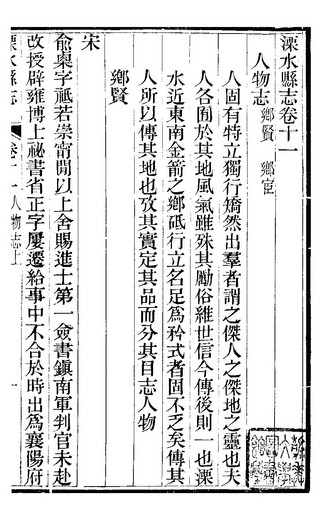 溧水縣志卷十一
人物志 鄉賢 鄉宦
人固有特立獨行矯然出羣者謂之傑人之傑地之靈也夫
人各囿於其地風氣雖殊其勵俗維世信今傳後則一也溧
水近東南金箭之鄉砥行立名足爲矜式者固不乏矣傳其
人所以傳其地也攷其實定其品而分其目志人物
鄉賢
宋
俞㮚字祗若崇甯間以上舍賜進士第一僉書鎭南軍判官未赴
改授辟雍博士祕書省正字屢遷給事中不合於時出爲襄陽府
溧水縣志
卷十一人物志上
一